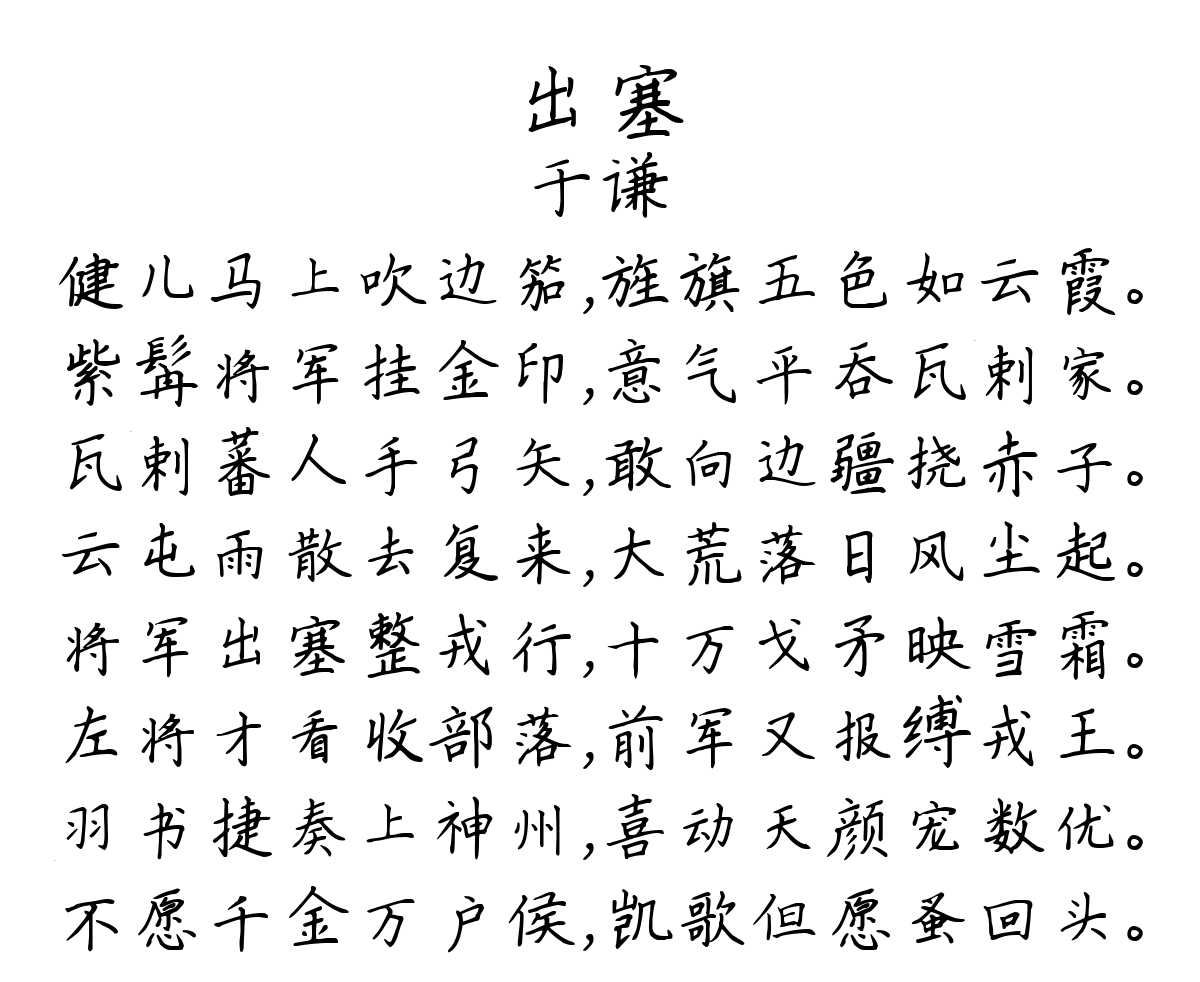 出塞
于谦
健儿马上吹边笳,旌旗五色如云霞。
紫髯将军挂金印,意气平吞瓦剌家。
瓦剌蕃人手弓矢,敢向边疆挠赤子。
云屯雨散去复来,大荒落日风尘起。
将军出塞整戎行,十万戈矛映雪霜。
左将才看收部落,前军又报缚戎王。
羽书捷奏上神州,喜动天颜宠数优。
不愿千金万户侯,凯歌但愿蚤回头。